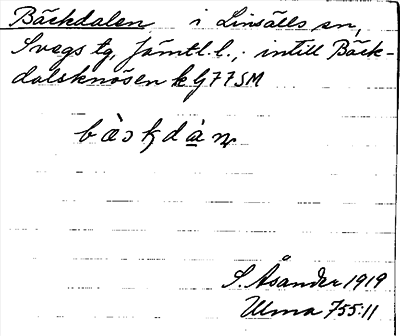 Bäckdalen i Linsälls sn,
Svegs tg, Jämtl. l., intill Bäck-
dalsknösen k G77SM
S. Åsander 1919
Ulma 755:11